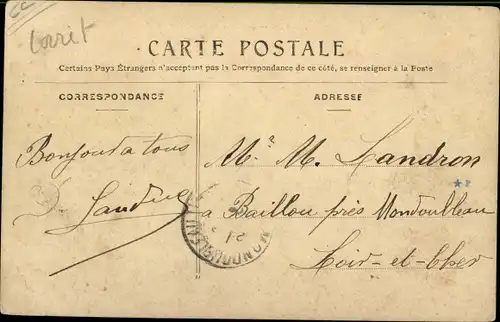 Lorrit
CARTE POSTALE
Certains Pays Étrangers n'acceptent pas la Correspondance de ce côté, se renseigner à la Poste
CORRESPONDANCE
ADRESSE
Bonjour a tous
Mr M. Landron
a Baillou près Mondoubleau
Loir-et-Cher
21